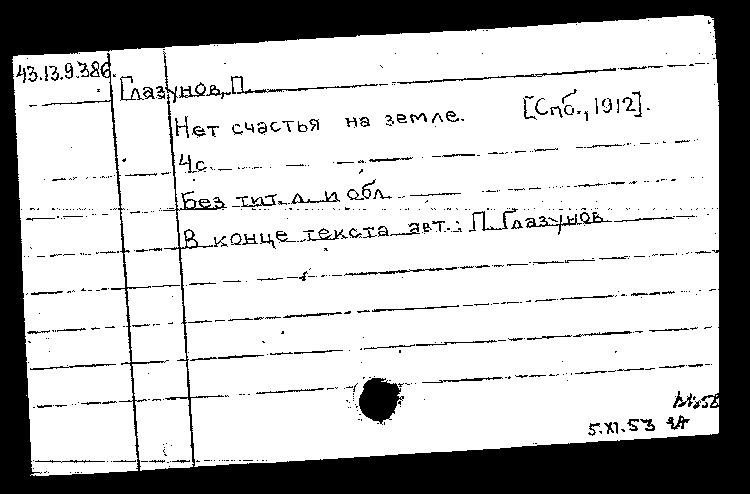 43.13.9.386.
Глазунов, П.
Нет счастья на земле. [Спб., 1912].
4с.
Без тит. л. и обл.
В конце текста авт.: П. Глазунов
5.XI.53